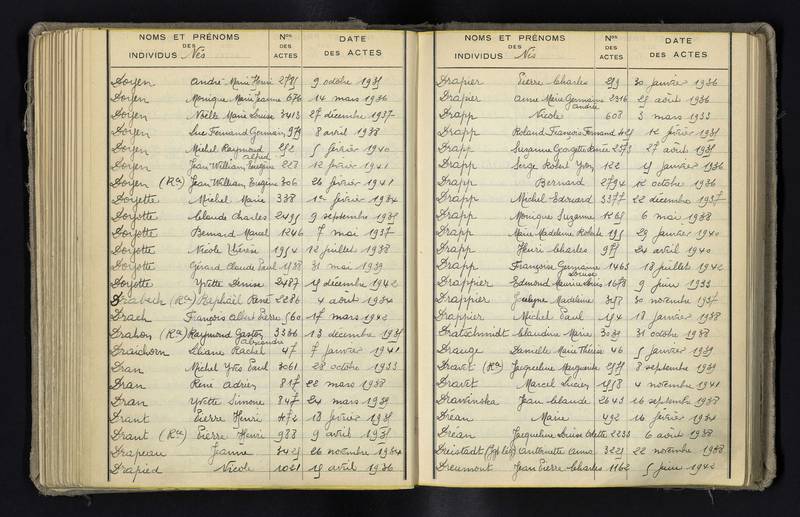 NOMS ET PRÉNOMS
DES
INDIVIDUS Nés
Nos
DES
ACTES
DATE
DES ACTES
Doyen André Marie Henri 9 octobre 1935
Doyen Monique Marie Jeanne 676 14 mars 1936
Doyen Noëlle Marie Louise 3413 27 décembre 1937
Doyen Luc Fernand Germain 979 8 avril 1938
Doyen Michel Raymond 252 5 février 1940
alfred
Doyen Jean William Eugène 228 12 février 1941
Doyen (Ron) Jean William Eugène 306 26 février 1941
Doyette Michel Marie 338 1er février 1934
Doyotte Claude Charles 2495 9 septembre 1935
Doyotte Bernard Marcel 1246 7 mai 1937
Doyotte Nicole Thérèse 1954 12 juillet 1938
Doyotte Gérard Claude Paul 1538 31 mai 1939
Doyotte Yvette Denise 2487 15 décembre 1942
Drabech (Ron) Raphaël René 2286 4 août 1934
Drach François Albert Pierre 560 17 mars 1942
Drahon (Ron) Raymond Gaston 3336 13 décembre 1935
alexandre
Draichorn Liliane Rachel 47 7 janvier 1941
Dran Michel Yves Paul 3061 28 octobre 1933
Dran René Adrien 817 22 mars 1938
Dran Yvette Simone 847 24 mars 1939
Drant Pierre Henri 472 18 février 1935
Drant (Ron) Pierre Henri 988 9 avril 1935
Drapeau Jeanne 3425 26 novembre 1934
Drapied Nicole 1021 15 avril 1936
NOMS ET PRÉNOMS
DES
INDIVIDUS Nés
Nos
DES
ACTES
DATE
DES ACTES
Drapier Pierre Charles 259 30 janvier 1936
Drapier Anne Marie Germaine 2316 25 août 1936
andrée
Drapp Nicole 608 3 mars 1933
Drapp Roland François Fernand 425 12 février 1935
Drapp Suzanne Georgette Renée 2373 27 août 1935
Drapp Serge Robert Yvon 122 15 janvier 1936
Drapp Bernard 2794 12 octobre 1936
Drapp Michel Edouard 3377 22 décembre 1937
Drapp Monique Suzanne 1265 6 mai 1938
Drapp Marie Madeleine Rolande 195 29 janvier 1940
Drapp Henri Charles 975 24 avril 1940
Drapp Françoise Germaine 1463 18 juillet 1942
Louise
Drappier Edmond Maurice Louis 1678 9 juin 1933
Drappier Jocelyne Madeleine 30 novembre 1937
Drappier Michel Paul 154 18 janvier 1938
Dratschmidt Claudine Marie 3039 31 octobre 1938
Drauge Danielle Marie Thérèse 46 5 janvier 1939
Dravet (Ron) Jacqueline Marguerite 8 septembre 1939
Dravet Marcel Lucien 1558 4 novembre 1941
Drawinska Jean Claude 2643 16 septembre 1938
Dréan Marie 492 16 février 1934
Dréan Jacqueline Louise Odette 2233 6 août 1938
Dreistadt Antoinette Anna 3225 22 novembre 1938
Dreumont Jean Pierre Charles 1162 5 juin 1942